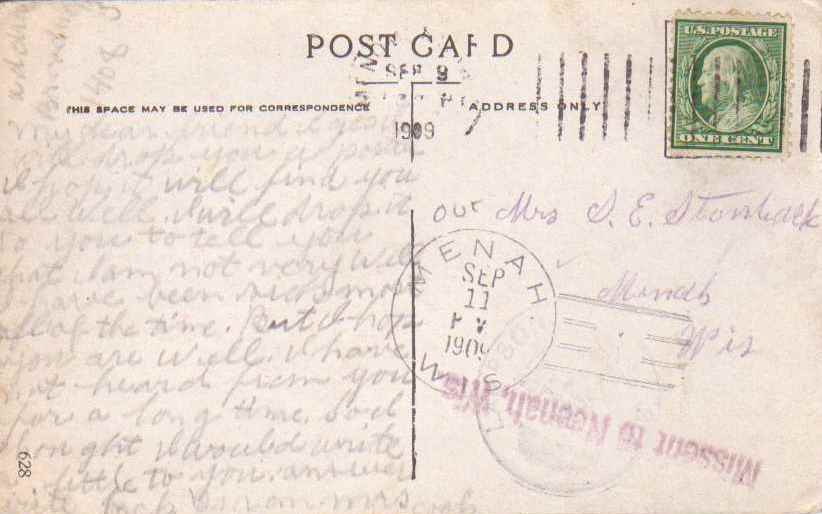 POST CARD
THIS SPACE MAY BE USED FOR CORRESPONDENCE
ADDRESS ONLY
U.S. POSTAGE
ONE CENT
SEP 9
1909
My dear friend I
drop you a
I hope it will find you
all well. I will drop it
to you to tell you
that I am not very well
I have been sick most
all of the time. But I hope
you are well. I have
not heard from you
for a long time. So I
thought I would write
a little to you. answer
write back soon Mrs
our Mrs S. E.
Menah
Wis
MENAH
SEP
11
P M
1909
WIS
Missent to Neenah, Wis
628